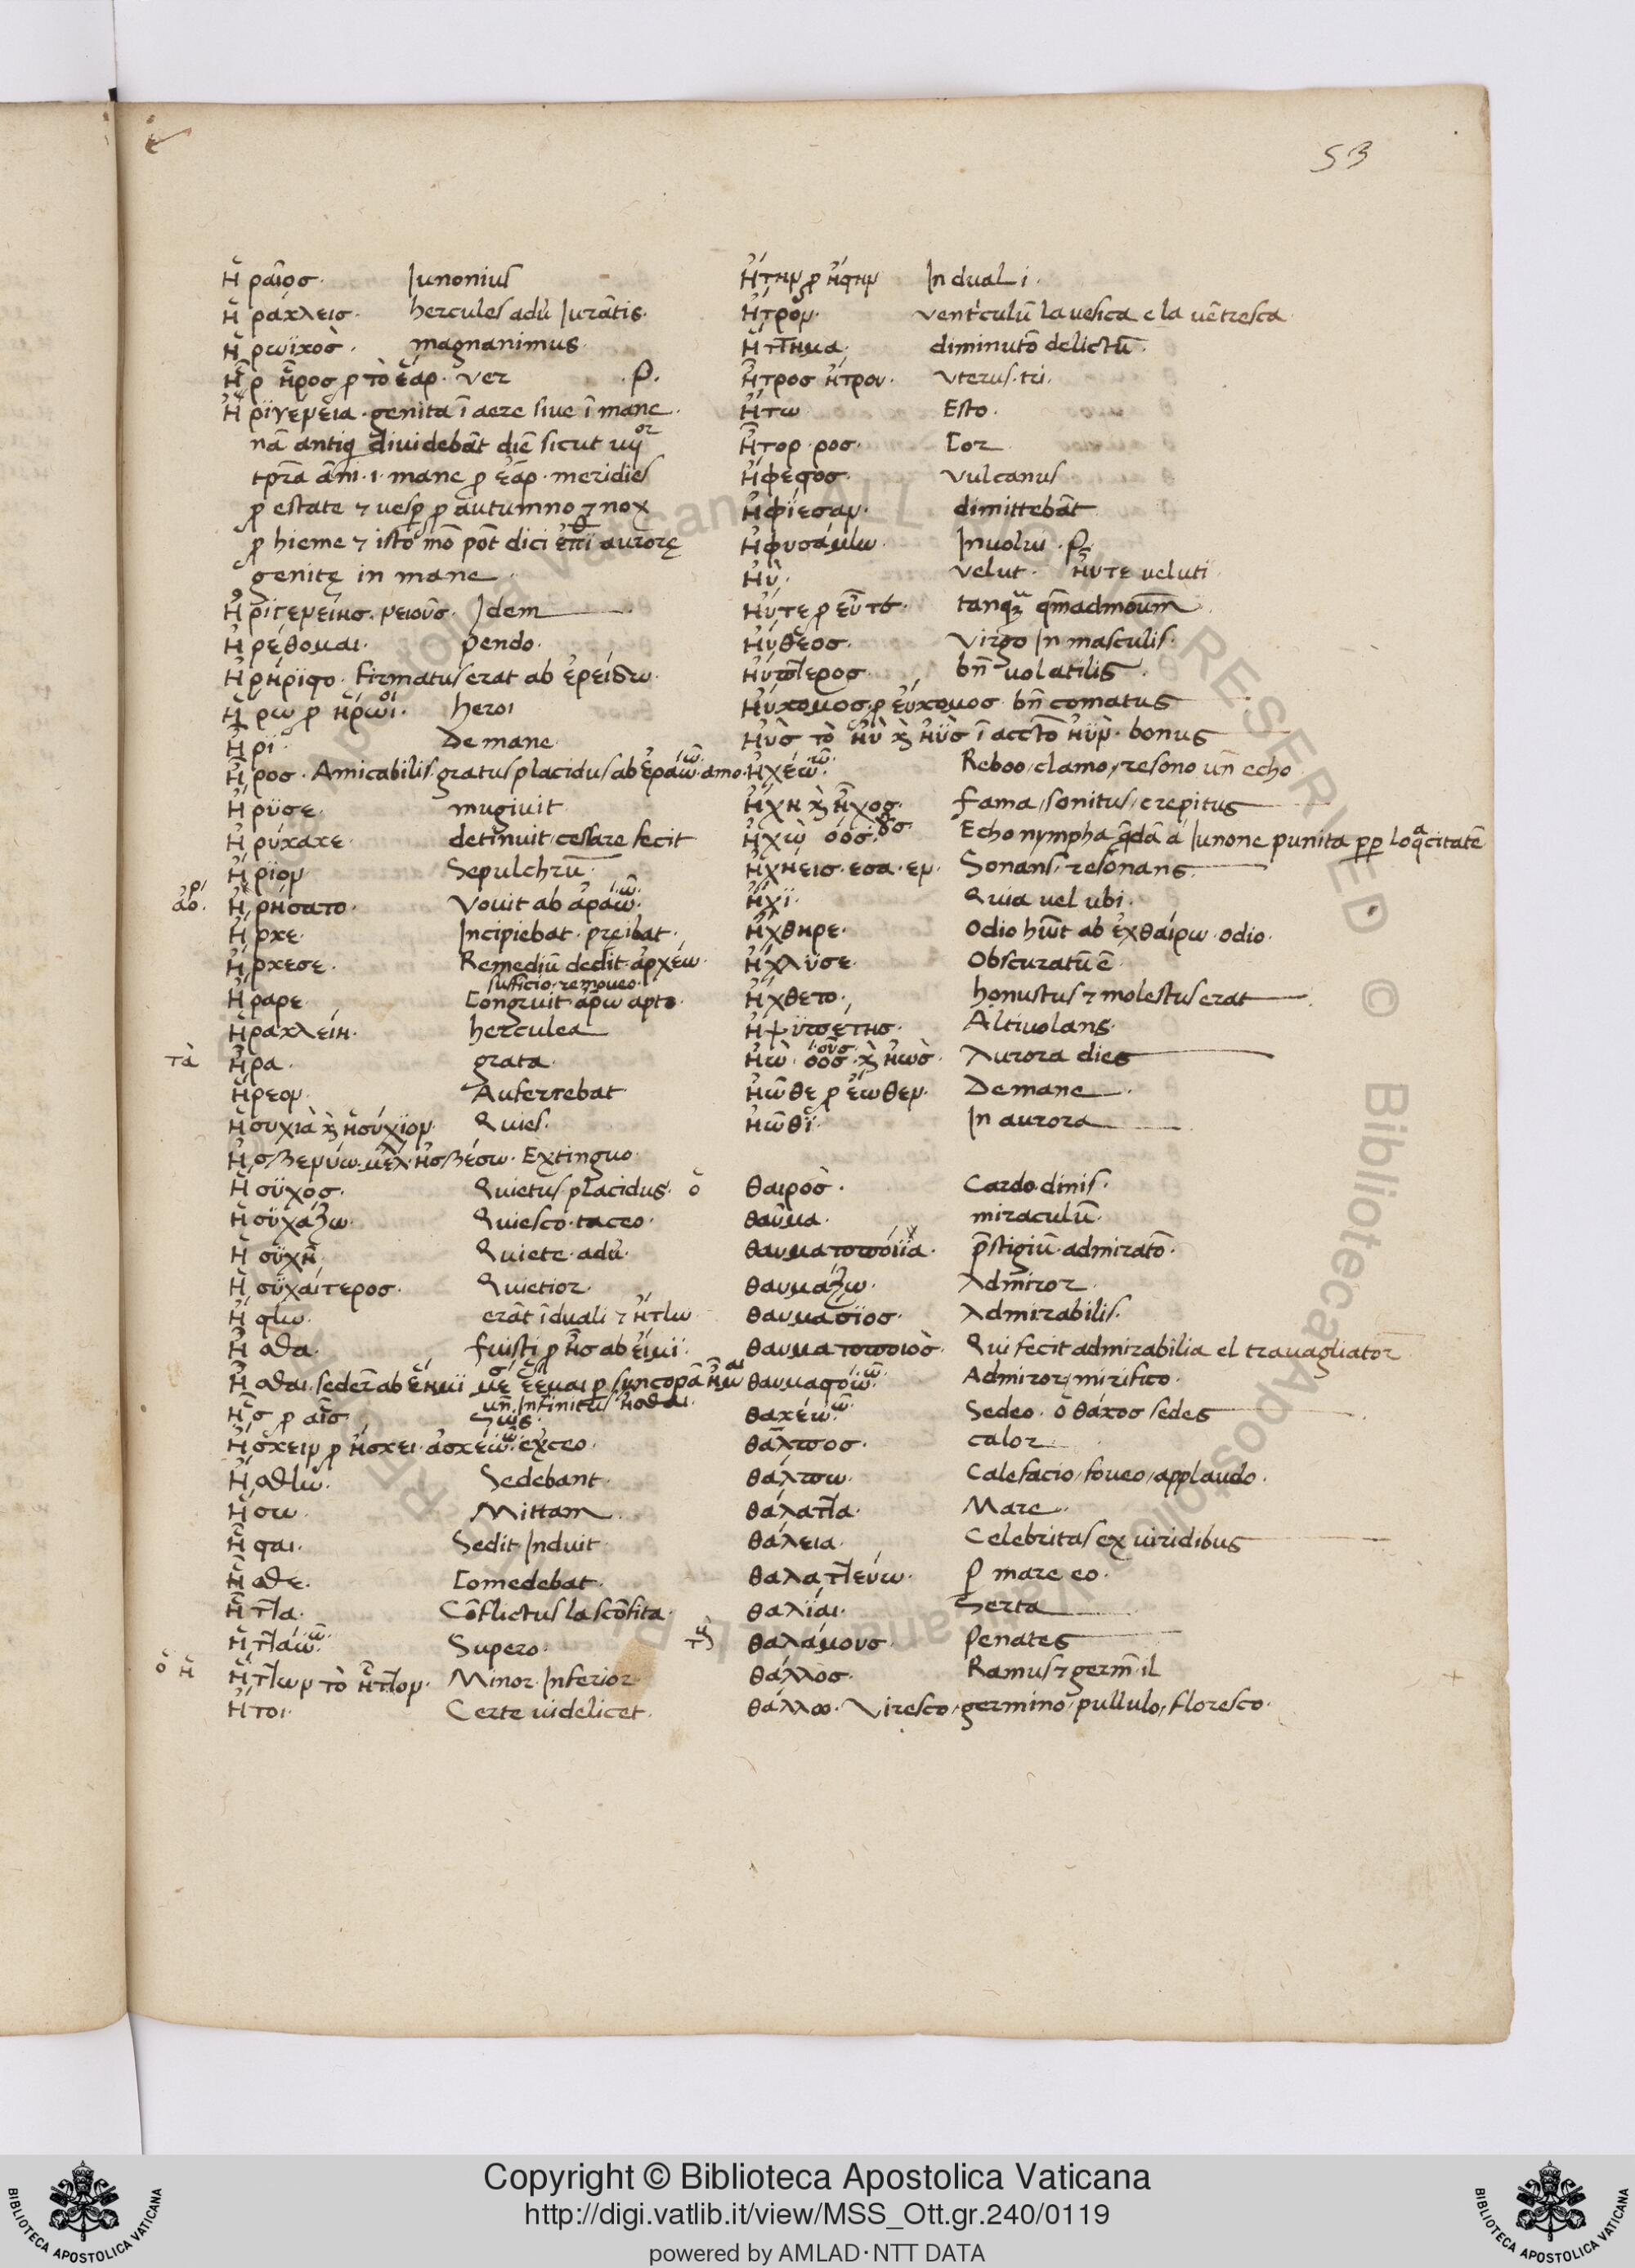 53
Ἡραῖοσ· Junonius
Ἡράκλεισ· hercules adu̅ Jurātis·
Ἡρωϊκὸσ· magnanimus
Ἦρ ἦροσ ꝓ τὸ ἔαρ· ver ·ρ·
Ἠριγένεια· genita ī aere siue ī mane·
nā antiq diuidebāt diē sicut iiijor
tp̄ra āni ·i· mane ꝓ ἔαρ· meridies
ꝓ estate ⁊ uesꝑ ꝓ autumno ⁊ nox
ꝓ hieme ⁊ isto mō pōt dici aurorę
genitę in mane
Ἠριγενείησ· νειουσ· Jdem
Ἠρέθομαι· pendo·
Ἠρήριϛο· firmatus erat ab ἐρείδω·
Ἥρω ꝓ ἥρωϊ· heroi
Ἦρι· De mane
Ἦροσ· Amicabilis gratus placidus ab ἐράω· amo·
Ἤρυσε· mugiuit
Ἠρύκακε· detinuit· cessare fecit
Ἠρίον Sepulchrū
Ἠρήσατο· Vouit ab ἀράω·
Ἦρχε· Incipiebat· preibat·
Ἤρκεσε· Remediū dedit· ἀρκέω·
sufficio· remoueo·
Ἤραρε Congruit· ἄρω apto·
Ἡρακλείη· herculea
τὰ Ἦρα· grata·
ᾝρεον· Auferebat·
Ἡσυχία κὶ ἡσύχιον· Quies·
Ἠσβενύω· μελ· ἠσβέσω· Extinguo·
Ἥσυχοσ· Quietus placidus·
Ἡσυχάζω· Quiesco· taceo·
Ἡσυχῆ Quiete· adu̅·
Ἡσυχαίτεροσ· Quietior·
Ἤϛην· erāt ī duali ⁊ ἤτην
Ἦσθα· fuisti ꝓ ἦσ ab εἰμί·
Ἦσ ꝓ αἷσ
un̄ Infinitus ἧσθαι·
Ἤσκειν ꝓ ἤσκει· ἀσκέω· exceo·
Ἥσθην· Sedebant·
Ἥσω· Mittam
Ἧϛαι· Sedit· Induit·
Ἦσθε· Comedebat·
Ἧττα· Cōflictus la scōfita·
Ἡττάω· Supero·
ὁ ἡ Ἥττων τὸ ἧττον· Minor· Inferior
Ἤτοι· Certe uidelicet·
Ἤτην ꝓ ἤϛην In duali·
Ἦτρον· ventriculū la uesica e la uētresca
Ἥττημα· diminutō delictū·
Ἦτροσ ἤτρου· Vterus· tri·
Ἤτω Esto·
Ἦτορ· ροσ· Cor
Ἥφεϛοσ· Vulcanus
Ἠφίεσαν· dimittebāt
Ἠφυσάμην· Inuolui ·ρ·
Ἠΰ· Velut· ἠΰτε ueluti
Ἠΰτε ꝓ εὖτε· tanq̄ q̄madmodum
Ἠΰθεοσ· Virgo In masculis·
Ἠΰπτεροσ· bn̄ uolatilis
Ἠΰκομοσ ꝓ εὔκομοσ bn̄ comatus
Ἠῢσ τὸ ἠῢ κὶ ἠῢσ ī acctō ἠΰν· bonus
Ἠχέω· Reboo, clamo, resono un̄ echo
Ἠχὴ κὶ ἦχοσ· fama, sonitus, crepitus
Ἠχὼ όοσ· οῦσ· Echo nympha q̄dā a Iunone punita ꝓꝑ loqacitatē
Ἠχήεισ· εσα· εν· Sonans· resonans
Ἧχι· Quia uel ubi·
Ἤχθηρε· Odio habuit ab ἐχθαίρω· odio·
Ἤχλυσε· Obscuratū ē
Ἤχθετο· honustus ⁊ molestus erat
Ἠψυπέτησ· Altiuolans·
Ἠὼ· όοσ· οῦσ· κὶ ἠὼσ· Aurora dies
Ἠῶθε ꝓ ἕωθεν· De mane
Ἠῶθι· In aurora
ὁ θαιρὸσ· Cardo· dinis·
θαῦμα· miraculū·
θαυματοποιΐα· p̄stigiū· admiratō·
θαυμάζω· Admiror
θαυμάσιοσ· Admirabilis·
θαυματοποιὸσ· Qui fecit admirabilia el trauagliator
θαυμαϛόω· Admiror, mirifico·
θακέω· Sedeo· ὁ θάκοσ sedes
θάλποσ· calor
θάλπω· Calefacio, foueo, applaudo·
θάλαττα· Mare
θάλεια· Celebritas ex uiridibus
θαλαττεύω· ꝑ mare eo·
θαλίαι· Serta
θαλάμουσ· Penates
θάλλοσ· Ramus ⁊ germ̄· il
θάλλω· Viresco, germino, pullulo, floresco·
Copyright © Biblioteca Apostolica Vaticana
http://digi.vatlib.it/view/MSS_Ott.gr.240/0119
powered by AMLAD·NTT DATA
BIBLIOTECA APOSTOLICA VATICANA
BIBLIOTECA APOSTOLICA VATICANA